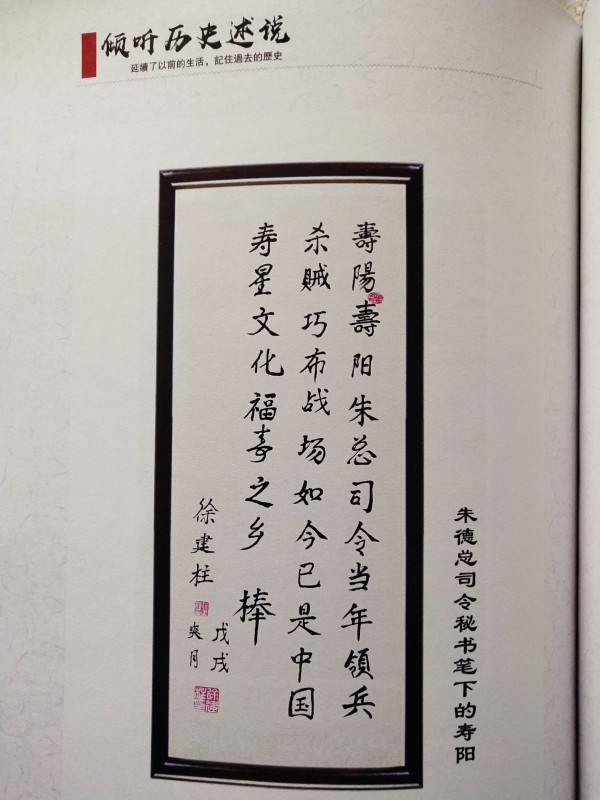 倾听历史述说
延續了以前的生活，記住過去的歷史
壽陽壽阳朱总司令当年领兵
杀贼巧布战场如今已是中国
寿星文化福寿之乡 棒
戊戌
爽月
徐建柱
朱德总司令秘书笔下的寿阳